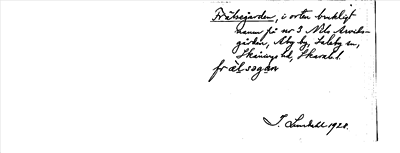 Frälsegården, i orten brukligt
namn på nr 3 Nils Arvids-
gården, Åby by, Saleby sn,
Skånings hd, Skarab. l.
frälsegården
J. Lindahl 1928.